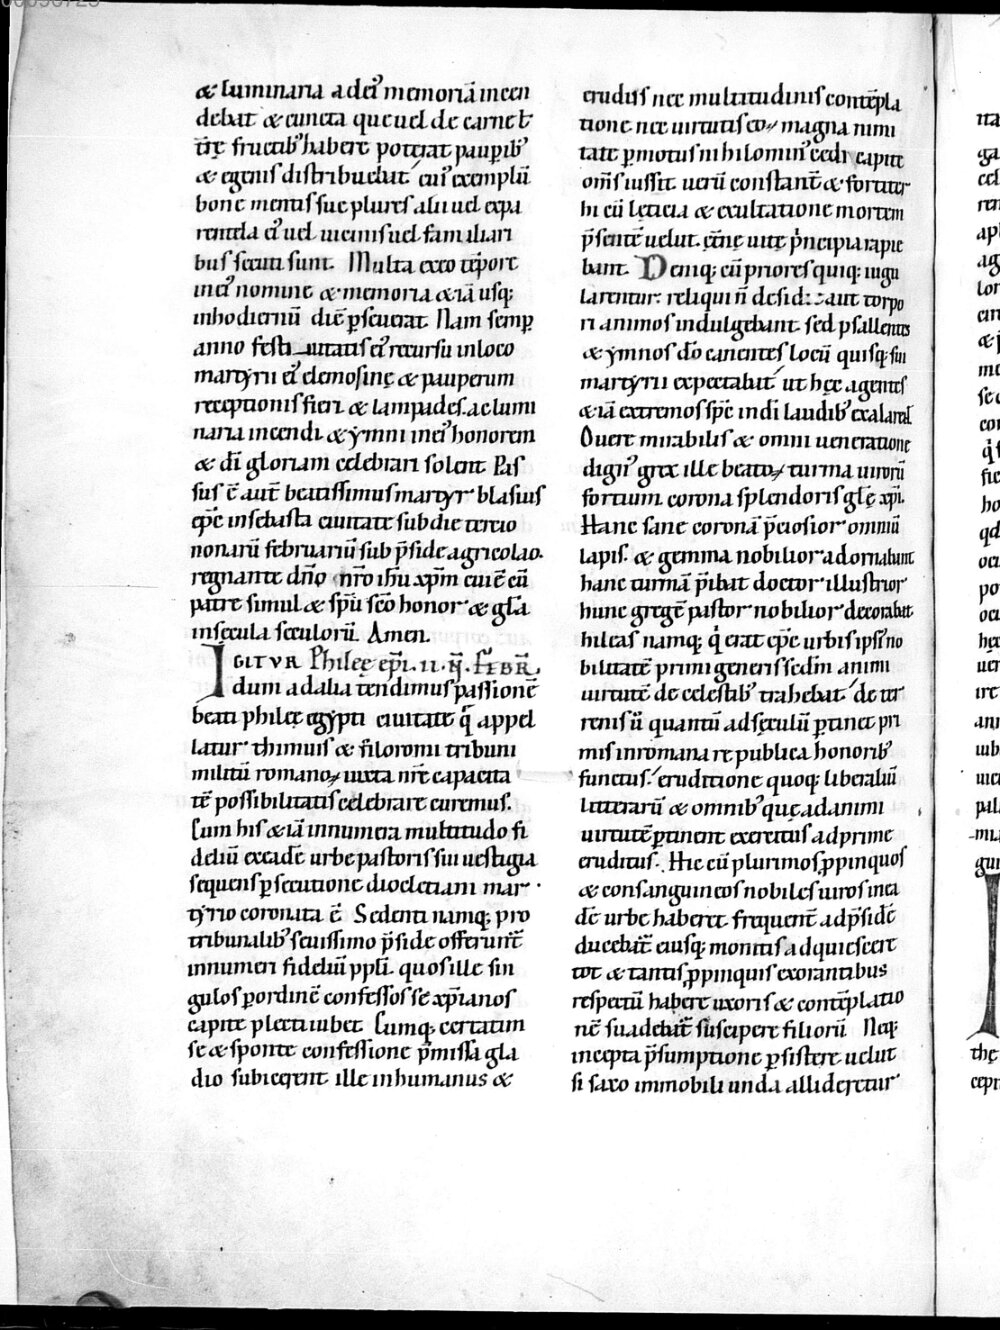 & luminaria ad ei᷒ memoriā incen
debat & cuncta que uel de carne ł
t̄rę fructib᷒ habere poterat paup̱ib᷒
& egenis distribuebat. cui᷒ exemplū
bone mentis sue plures alii uel expa
rentela ei᷒ uel uicinis uel familiari
bus secuti sunt. Multa ex eo tēpore
in ei᷒ nomine & memoria & iā usq;
in hodiernū diē p̱seuerat. Nam semp̱
anno festiuitatis ei᷒ recursu in loco
martyrii ei᷒ elemosinę & pauperum
receptionis fieri. & lampades. ac lumi
naria incendi. & ẏmni in ei᷒ honorem
& dī gloriam celebrari solent. Pas
sus ē aut̄ beatissimus martyr blasius
ep̄c in sebasta ciuitate sub die tercio
nonarū februariū sub p̄side agricolao.
regnante dn̄o nr̄o ih̄u xp̄m cui ē cū
patre simul & sp̄u sc̄o honor & gl̄a
in secula seculorū. Amen.
IGITVR Philęę ep̄i. II. N̄. FEBR̄.
dum ad alia tendimus passionē
beati philęę egẏpti ciuitate q̄ appel
latur thimuis & filoromi tribuni
militū romanoꝝ iuxta nr̄e capacita
tē possibilitatis celebrare curemus.
Cum his & iā innumera multitudo fi
deliū ex eadē urbe pastoris sui uestigia
sequens p̱secutione diocletiani mar
tẏrio coronata ē. Sedenti namq; pro
tribunalib᷒ seuissimo p̄side offerunt̄
innumeri fideliū pp̄li. quos ille sin
gulos p̱ ordinē confessos se xp̄ianos
capite plecti iubet. Cumq; certatim
se & sponte confessione p̄missa gla
dio subicerent. ille inhumanus &
crudus nec multitudinis contēpla
tione nec uirtutis eoꝝ magna nimi
tate p̱motus nihilomin᷒ cedi capite
om̄s iussit. uerū constant̄ & fortiter
hi cū lęticia & exultatione mortem
p̄sentē uelut ęt̄nę uitę p̄ncipia rapie
bant. Deniq; cū priores quiq; iugu
larentur. reliqui n̄ desidia aut torpo
ri animos indulgebant. sed psallentes
& ẏmnos dō canentes locū quisq; sui
martẏrii expectabat. ut hęc agentes
& iā extremos sp̄c in dī laudib᷒ exalarent.
O uere mirabilis & omni ueneratione
dign᷒ grex ille beatoꝝ turma uirorū
fortium. corona splendoris gl̄ę xp̄i.
Hanc sane coronā p̄ciosior omniū
lapis. & gemma nobilior adornabant
hanc turmā p̄ibat doctor illustrior
hunc gregē pastor nobilior decorabat
phileas namq; q̇ erat ep̄c urbis ipsi᷒ no
bilitatē primi generis sedm̄ animi
uirtutē de celestib᷒ trahebat. de ter
renis ū quantū ad sęculū p̱tinet pri
mis in romana re publica honorib᷒
functus. eruditione quoq; liberaliū
litterarū & omnib᷒ quę ad animi
uirtutē p̱tinent exercitiis adprime
eruditus. Hic cū plurimos ꝓpinquos
& consanguineos nobiles uiros in ea
dē urbe haberet. frequent̄ ad p̄sidē
ducebat̄ eiusq; monitis adquiescere
tot & tantis ꝓpinquis exorantibus
respectū habere uxoris & contēplatio
nē suadebat̄ suscipere filiorū. Neq;
in cepta p̄sumptione p̱sistere. uelut
si saxo immobili unda allideretur